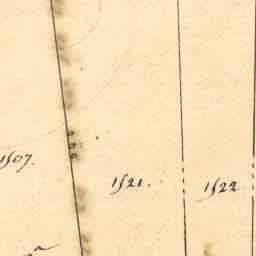 1507.
1521.
1522
a